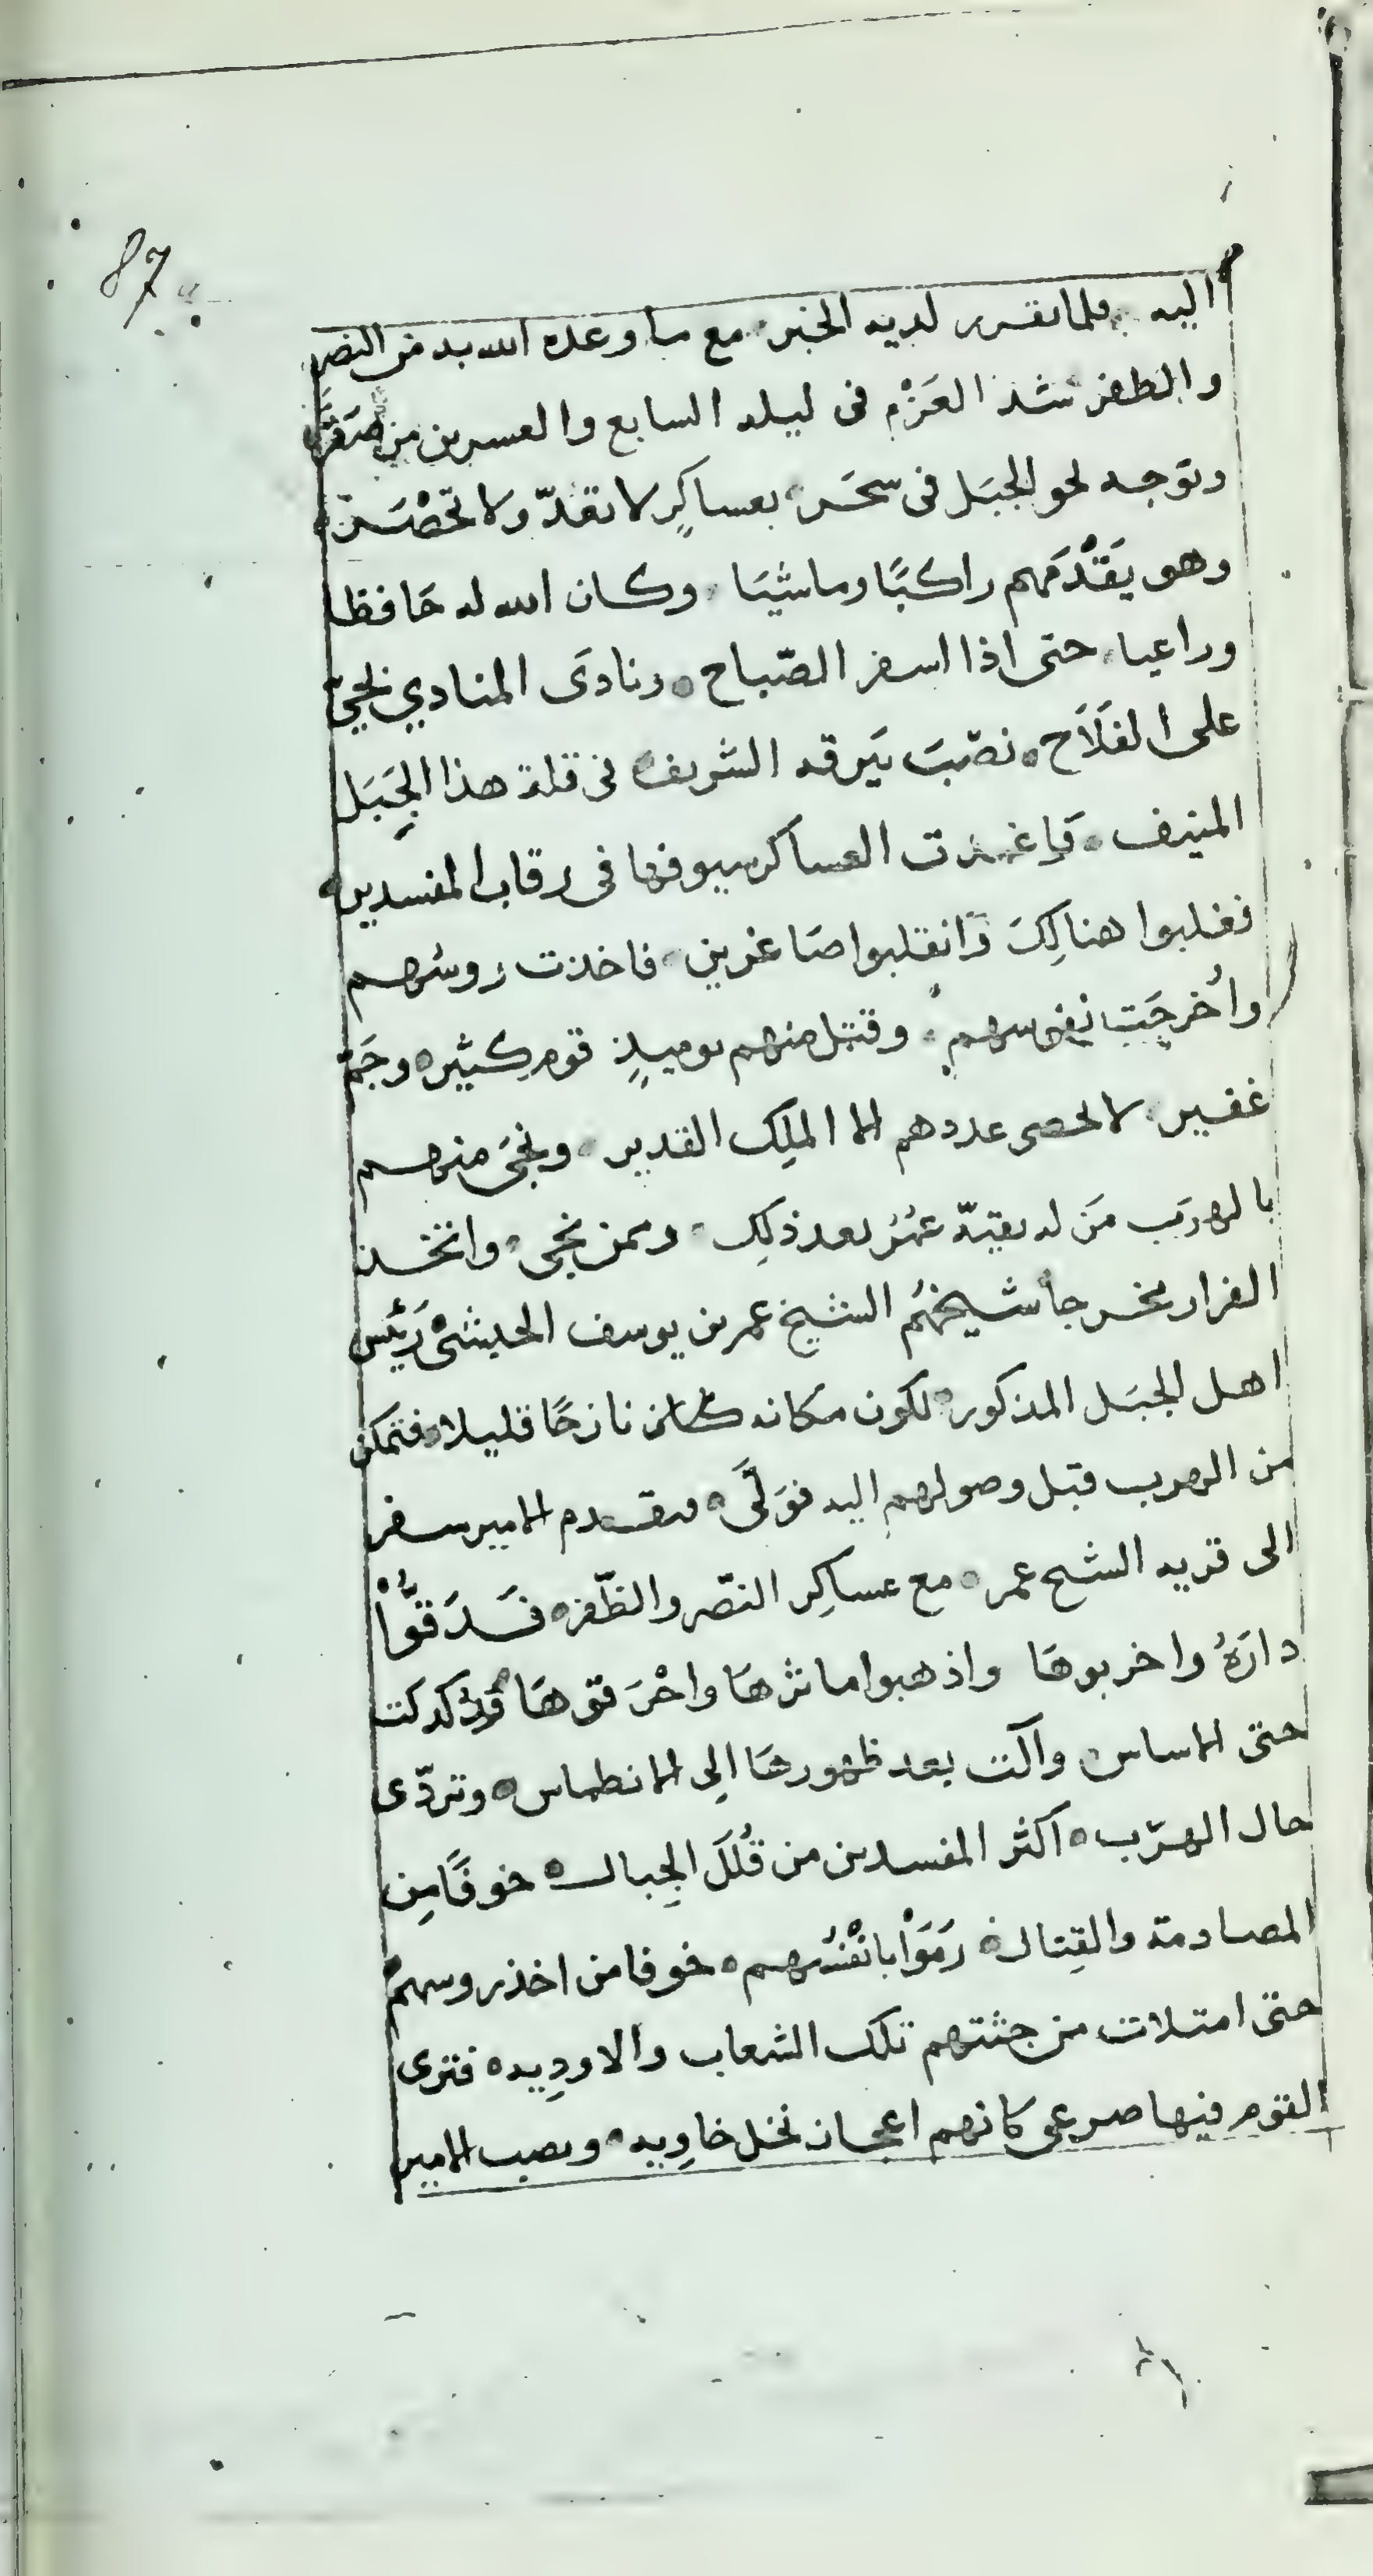 87
اليه فلما تقرر لديه الخبر مع ما وعده الله به من النصر
والظفر شد العَزْم فى ليلة السابع والعسرين من صَفَر
وتوجه نحو الجبَل فى سحَر بعساكِر لا تعدّ ولا تحْصَر
وهو يَقْدمَهم راكبًا وماشيَا وكان الله له حَافظا
وراعيا حتى اذا اسفر الصّباح ونادَى المنادي بحيّ
على الفَلَاح نصّبَ بَيرقه الشريف فى قلة هذا الجَبَل
المنيف فاغمدت العساكر سيوفها فى رقاب المفسدين
فغلبوا هنالِكَ وَانقلبوا صَاغرين فاخذت روسُهم
واُخرجَت نفوسهم وقتل منهم يوميذٍ قوم كثير وجَمّ
غفير لا يحصى عددهم الا الملِك القدير ونجَى منهم
بالهرَب مَن له بقيّة عمُرُ بعد ذلِك وممن نجى واتخذ
الفرار مخرجاً شيخهُم الشيخ عمر بن يوسف الحبشىْ رَئيس
اهل الجبَل المذكور لكون مكانه كان نازحًا قليلا فتمكن
من الهرب قبل وصولهم اليه فوَلَّى فتقدم الامير سفر
الى قريه الشيخ عمر مع عساكِر النصّر والظّفر فَدَقوُّاْ
دارَهُ واخربوهَا واذهبوا ماثرهَا واحْرَقوهَا فدكدكت
حتى الاساس وآلت بعد ظهورهَا الِى الانطماس وتردّى
حال الهرَب اكثر المفسدين من قُلَلَ الجِبال خوفًا مِن
المصادمة والقِتال رَمَوْا بانْفُسهم خوفا من اخذ روسهمْ
حتى امتلات من جثتهم تلك الشعاب والاودِيه فترى
القوم فيها صرعى كانهم اعجاز نخل خاوِيه ونصب الامير